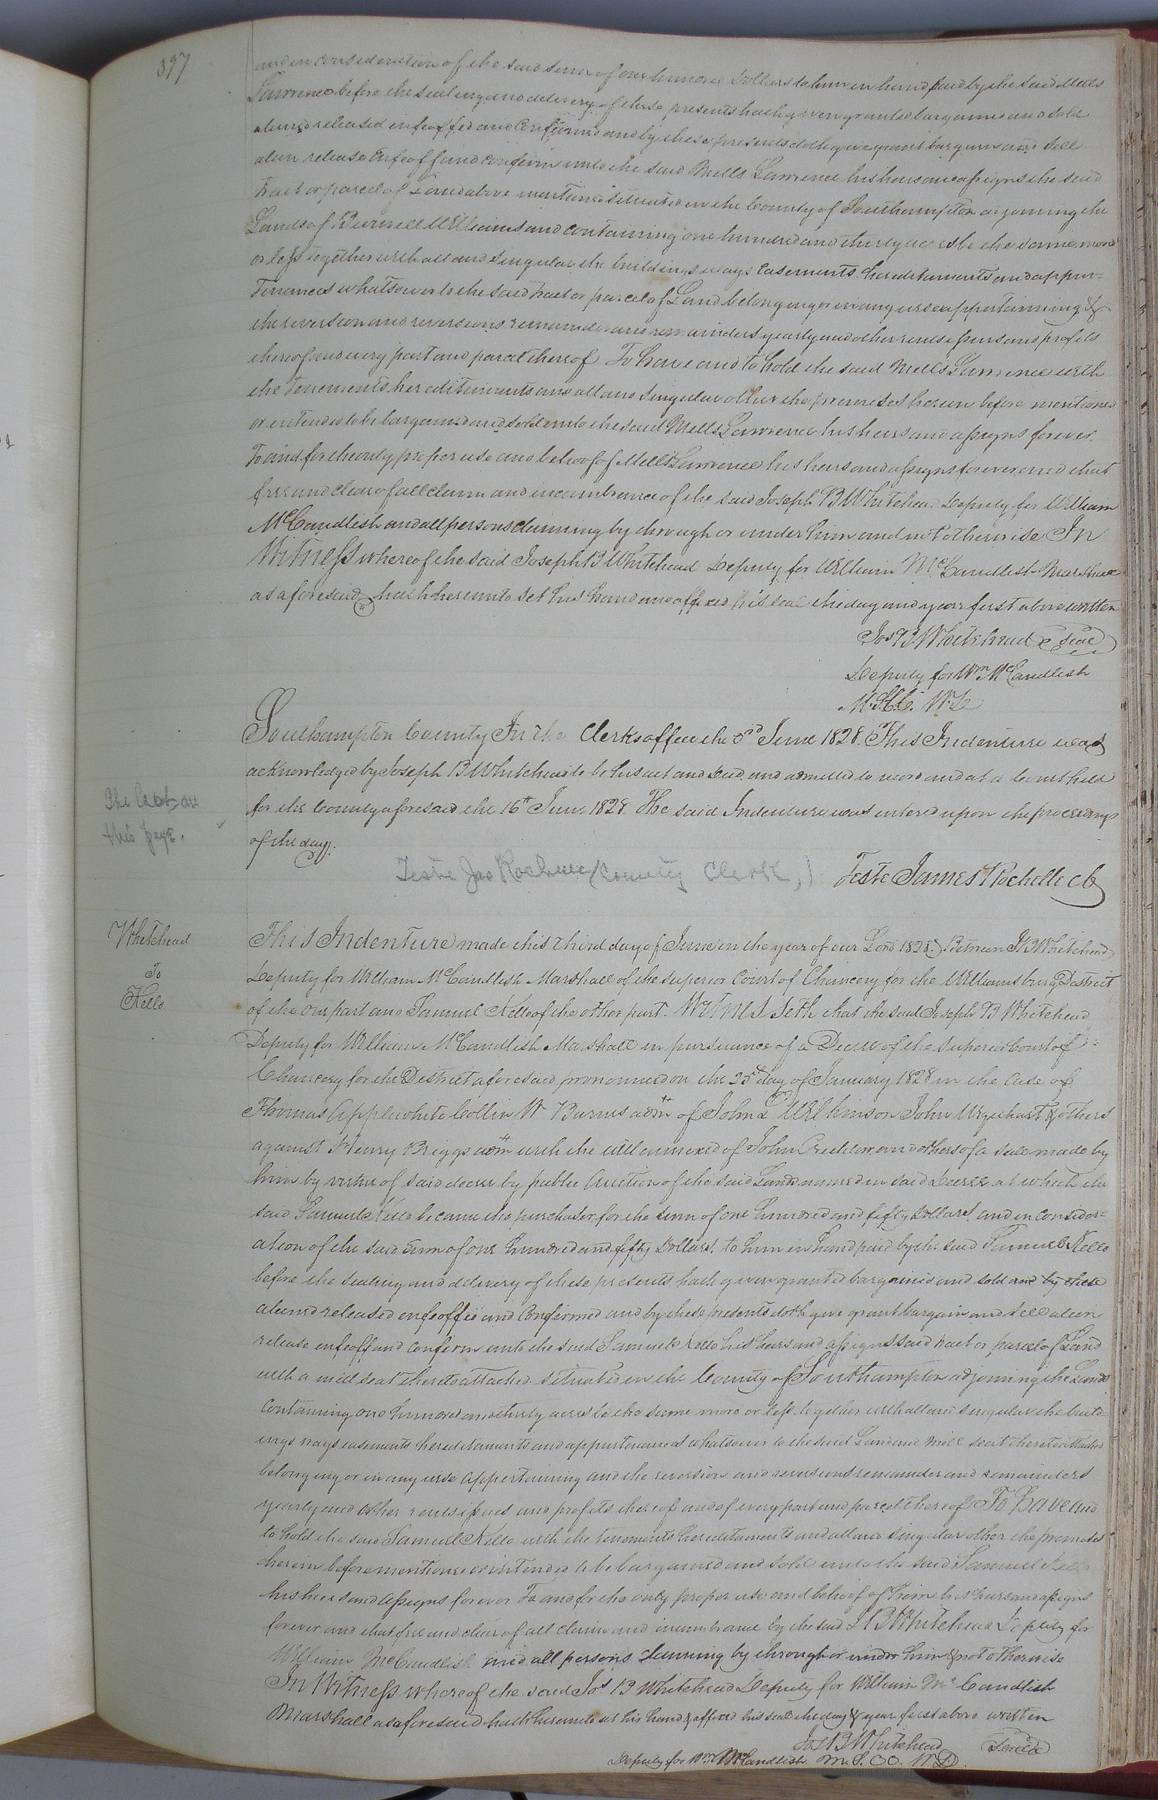 397
and in consideration of the said sum of one hundred Dollars to him in hand paid by the said Mills
Lawrence before the sealing and delivery of these presents hath given granted bargained and sold
aliened released enfeoffed and Confirmed and by these presents doth give grant bargain and sell
alien release Enfeoff and confirm unto the said Mills Lawrence his heirs and assigns the said
tract or parcel of Land above mentioned situated in the County of Southampton adjoining the
Lands of Burwell Williams and containing one hundred and thirty acres be the same more
or less together with all and Singular the buildings ways Easements hereditaments and appur=
tenances whatsoever to the said tract or parcel of Land belonging or in any wise appertaining &
the reversion and reversions remainder and remainders yearly and other rents issues and profits
thereof and every part and parcel thereof To have and to hold the said Mills Lawrence with
the tenements hereditaments and all and Singular other the premises herein before mentioned
or intended to be bargained and sold unto the said Mills Lawrence his heirs and assigns forever
To and for the only proper use and behoof of Mills Lawrence his heirs and assigns forever and that
free and clear of all claim and incumbrance of the said Joseph B Whitehead Deputy for William
McCandlish and all persons claiming by through or under him and not otherwise In
Witness whereof the said Joseph B Whitehead Deputy for William McCandlish Marshall
as aforesaid hath hereunto set his hand and affixed his seal the day and year first above written
Jos B Whitehead seal
Deputy for Wm McCandlish
M.S.C.C. W.D
Southampton County In the Clerks office the 3rd June 1828. This Indenture was
acknowledged by Joseph B Whitehead to be his act and deed and admitted to record and at a Court held
for the County aforesaid the 16th June 1828 The said Indenture was entered upon the proceedings
of the day.
this page.
Teste Jas Rochelle (County Clerk,)
Teste James Rochelle Cl
Whitehead
To
Kello
This Indenture made this third day of June in the year of our Lord 1828. Between J B Whitehead
Deputy for William McCandlish Marshall of the Superior Court of Chancery for the Williamsburg District
of the one part and Samuel Kello of the other part. Witnesseth that the said Joseph B Whitehead
Deputy for William McCandlish Marshall in pursuance of a Decree of the superior Court of
Chancery for the District aforesaid pronounced on the 25th day of January 1828 in the Case of
Thomas Applewhite Collin W Barnes adm of John D Wilkinson John Urquhart & others
against Henry Briggs adm with the will annexed of John and others of a sale made by
him by virtue of said decree by public Auction of the said Lands named in said Decree at which the
said Samuel Kello became the purchaser for the sum of one hundred and fifty Dollars and in consider=
ation of the said Sum of one hundred and fifty Dollars to him in hand paid by the said Samuel Kello
before the sealing and delivery of these presents hath given granted bargained and sold and by these
aliened released enfeoffed and Confirmed and by these presents doth give grant bargain and sell alien
release enfeoff and confirm unto the said Samuel Kello his heirs and assigns said tract or parcel of Land
with a mill seat thereto attached situated in the County of Southampton adjoining the Lands
Containing one hundred and thirty acres be the same more or less together with all and singular the build
ings ways easements hereditaments and appurtenances whatsoever to the said Land and mill seat thereto attached
belonging or in any wise Appertaining and the reversion and reversions remainder and remainders
yearly and other rents issues and profits thereof and of every part and parcel thereof To Have and
to hold the said Samuel Kello with the tenements hereditaments and all and singular other the premises
herein before mentioned or intended to be bargained and sold unto the said Samuel Kello
his heirs and assigns forever To and for the only proper use and behoof of him his heirs and assigns
forever and that free and clear of all Claim and incumbrance by the said J B Whitehead Deputy for
William McCandlish and all persons Claiming by through or under him & not otherwise
In Witness whereof the said Jos B Whitehead Deputy for William McCandlish
Marshall as aforesaid hath hereunto set his hand & affixed his seal the day & year first above written
Jos B Whitehead Seal
Deputy for Wm McCandlish M.S.C.C. W.D.